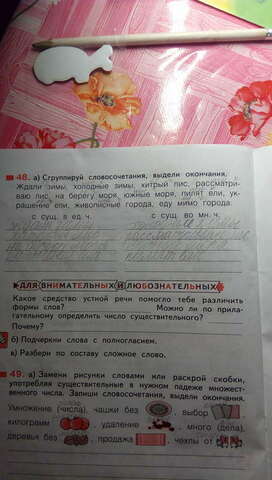 48. а) Сгруппируй словосочетания, выдели окончания.
Ждали зимы, холодные зимы, хитрый лис, рассматри-
ваю лис, на берегу моря, южные моря, пилят ели, ук-
рашение ели, живописные города, еду мимо города.
с сущ. в ед. ч. с сущ. во мн. ч.
ДЛЯ ВНИМАТЕЛЬНЫХ И ЛЮБОЗНАТЕЛЬНЫХ
Какое средство устной речи помогло тебе различить
формы слов? Можно ли по прила-
гательному определить число существительного?
Почему?
б) Подчеркни слова с полногласием.
в) Разбери по составу сложное слово.
49. а) Замени рисунки словами или раскрой скобки,
употребляя существительные в нужном падеже множест-
венного числа. Запиши словосочетания, выдели окончания.
Умножение (числа), чашки без , выбор ,
килограмм , удаление , много (дела),
деревья без , продажа , чехлы от